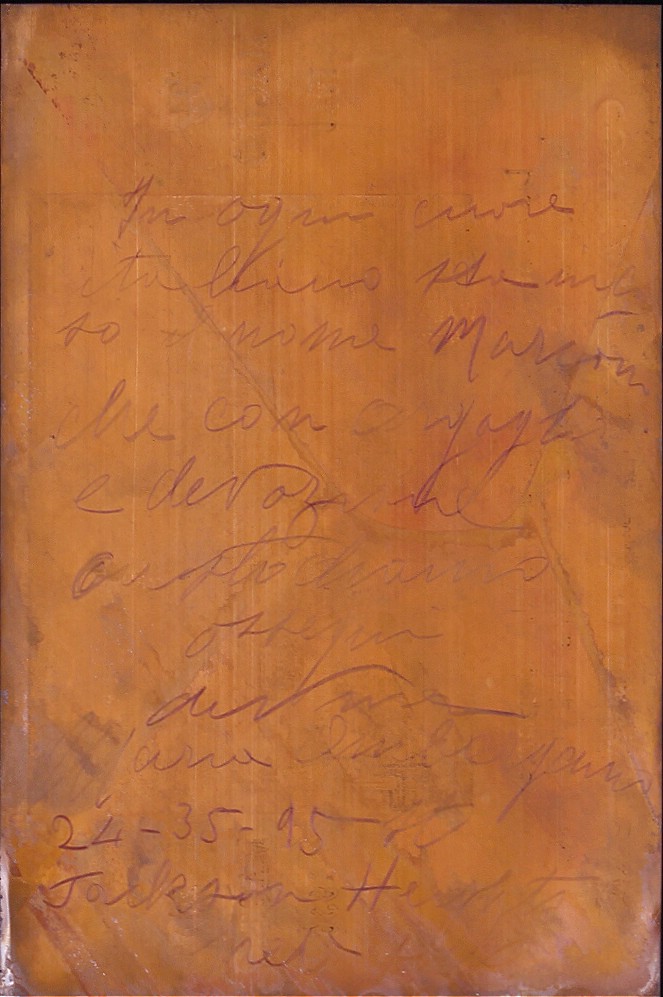 In ogni cuore
italiano sta me
so nome Marconi
che con orgoglio
e devozione
custodiamo
ossequi
dev me
24-35-95
Jackson Heights